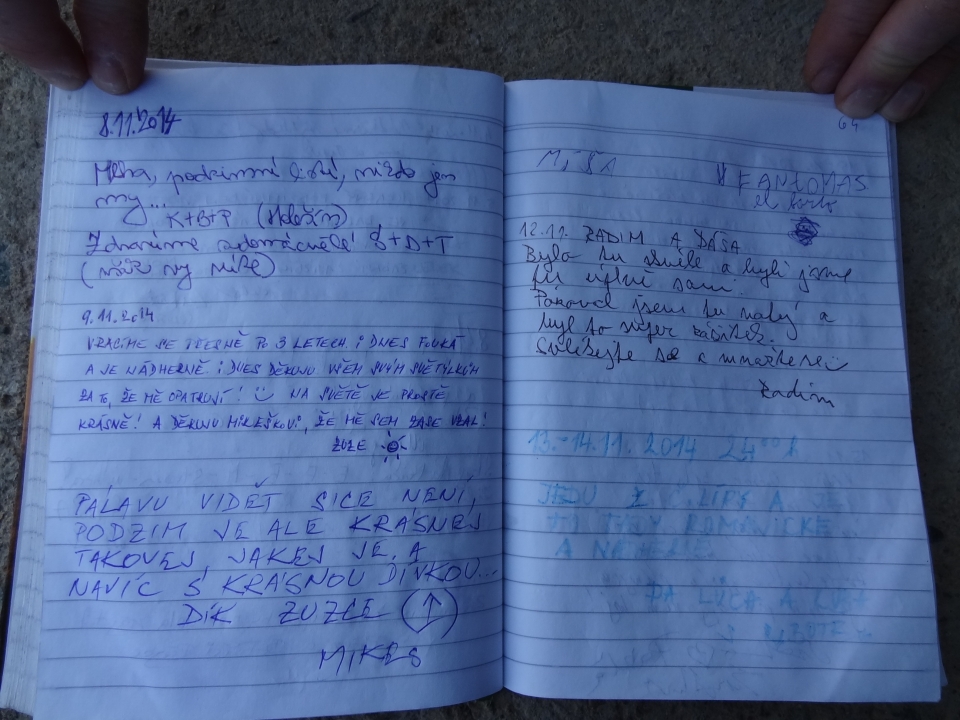 8.11.2014
Mlha, podzimní listí, nikdo jen
my...
K+B+P
Zdravíme +D+T
9.11.2014
VRACÍME SE PO 3 LETECH. I DNES FOUKÁ
A JE NÁDHERNĚ. I DNES DĚKUJU VŠEM SVÝM SVĚTÝLKŮM
ZA TO, ŽE MĚ OPATRUJÍ! NA SVĚTĚ JE PROSTĚ
KRÁSNĚ! A DĚKUJU MIKEŠKOVI, ŽE MĚ SEM ZASE VZAL!
ZUZE
PÁLAVU VIDĚT SICE NENÍ,
PODZIM JE ALE KRÁSNEJ
TAKOVEJ, JAKEJ JE, A
NAVÍC S KRÁSNOU DÍVKOU...
DÍK ZUZCE (↑)
MIKEŠ
64
MÍŠA
FANTOMAS
el
12.11. RADIM A DÁŠA
Bylo tu a byli jsme
tu úplně sami.
jsem tu nahý a
byl to super zážitek.
Radim
13.-14.11. 2014 24°°h
JEDU Z Č. LÍPY A JE
TO TADY ROMANTICKÉ
A
LÚCA A